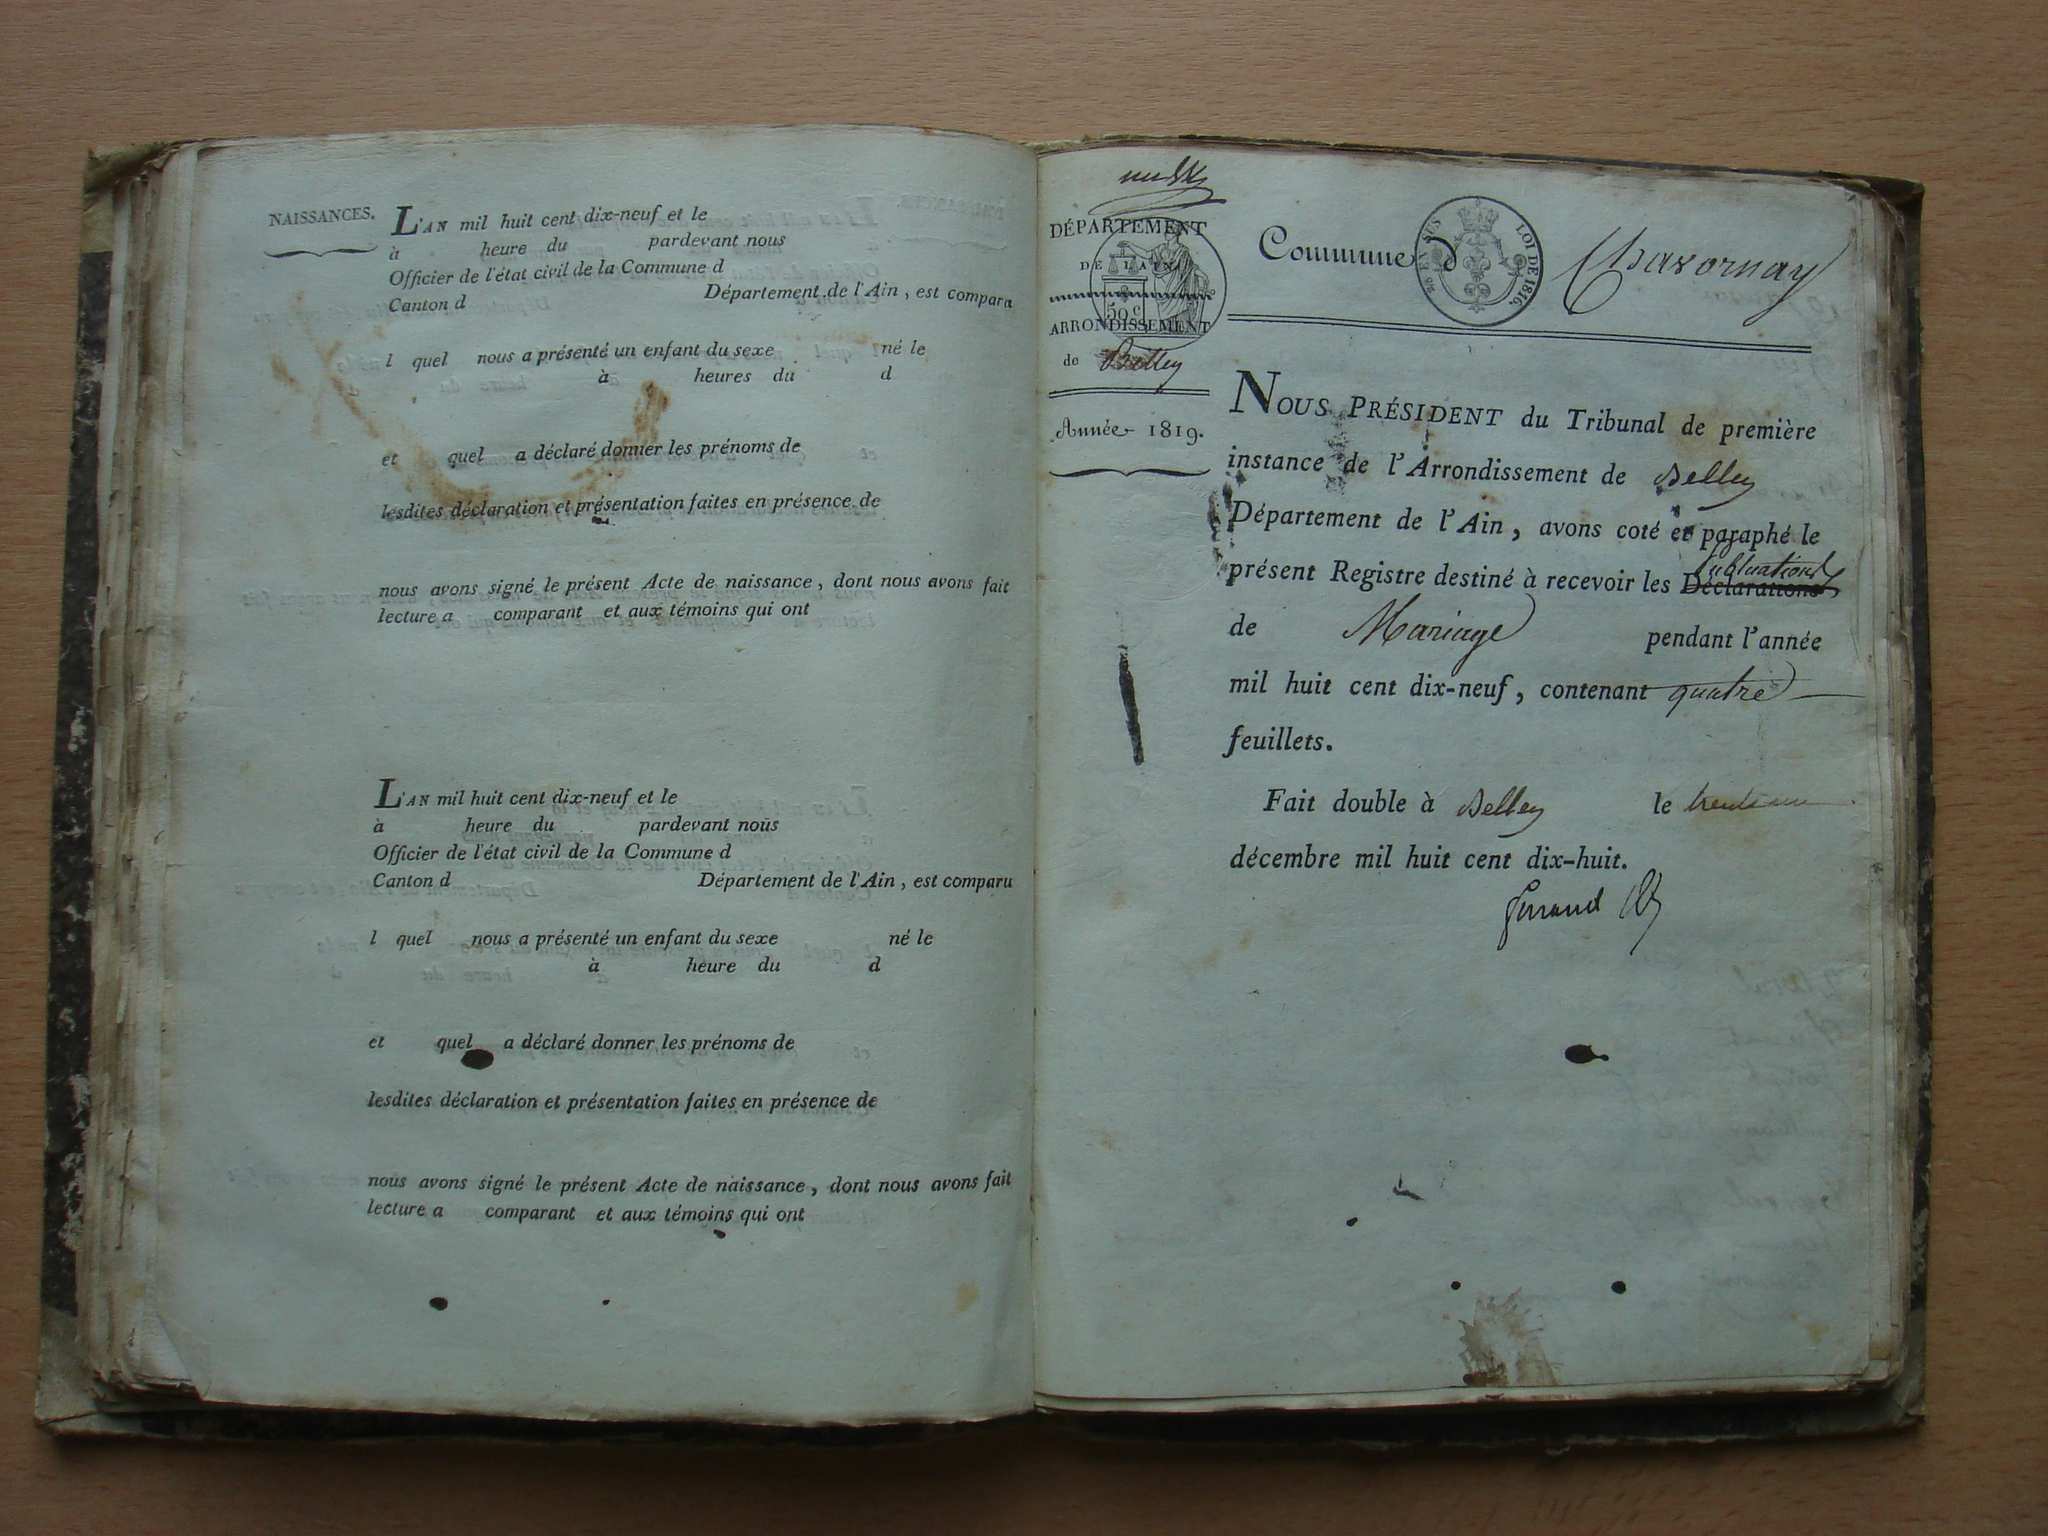 NAISSANCES.
L'AN mil huit cent dix-neuf et le
à heure du pardevant nous
Officier de l'état civil de la Commune d
Canton d Département de l'Ain, est comparu
l quel nous a présenté un enfant du sexe né le
à heures du d
et quel a déclaré donner les prénoms de
lesdites déclaration et présentation faites en présence de
nous avons signé le présent Acte de naissance, dont nous avons fait
lecture a comparant et aux témoins qui ont
L'AN mil huit cent dix-neuf et le
à heure du pardevant nous
Officier de l'état civil de la Commune d
Canton d Département de l'Ain, est comparu
l quel nous a présenté un enfant du sexe né le
à heure du d
et quel a déclaré donner les prénoms de
lesdites déclaration et présentation faites en présence de
nous avons signé le présent Acte de naissance, dont nous avons fait
lecture a comparant et aux témoins qui ont
DÉPARTEMENT
DE L'AIN
50 c
ARRONDISSEMENT
de Belley
Année 1819.
Commune d Chavornay
EN SUS LOI DE 1816.
NOUS PRÉSIDENT du Tribunal de première
instance de l'Arrondissement de Belley
Département de l'Ain, avons coté et paraphé le
publications
présent Registre destiné à recevoir les Déclarations
de Mariage pendant l'année
mil huit cent dix-neuf, contenant quatre
feuillets.
Fait double à Belley le trente un
décembre mil huit cent dix-huit.